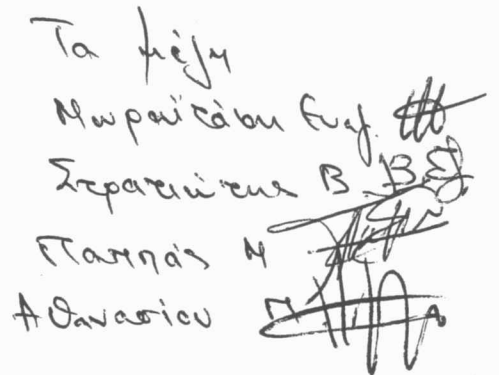 Τα μέλη
Μωραϊτάκη Ευαγ.
Στρατιώτης Β.
Παππάς Μ
Αθανασίου Π